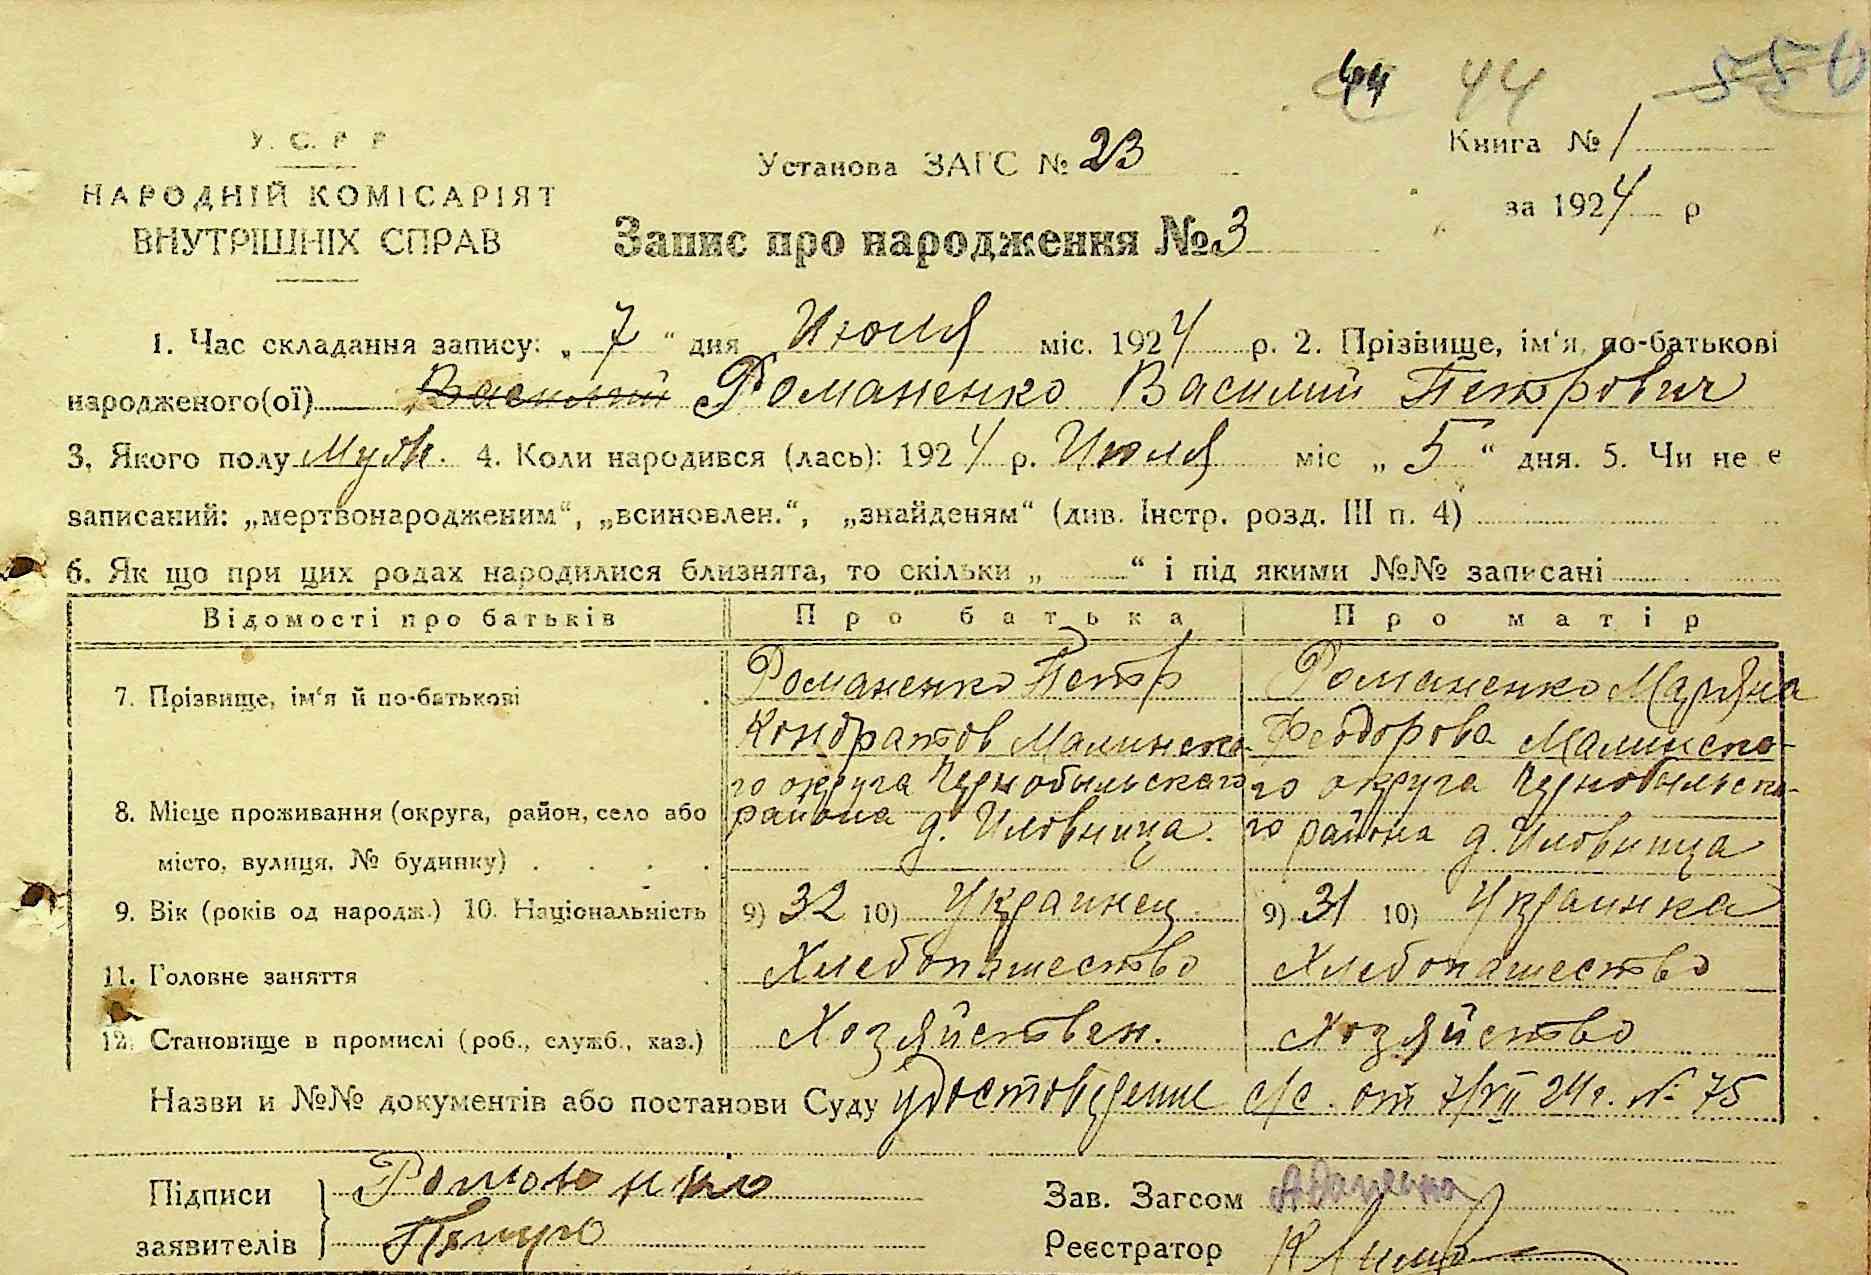 44 44 550
У. С. Р. Р
НАРОДНІЙ КОМІСАРІЯТ
ВНУТРІШНІХ СПРАВ
Установа ЗАГС № 23
Книга № 1
за 1924 р
Запис про народження № 3
1. Час складання запису: „ 7 “ дня Июля міс. 1924 р. 2. Прізвище, ім‘я, по-батькові
народженого(ої) Василий Романенко Василий Петрович
3. Якого полу Муж. 4. Коли народився (лась): 1924 р. Июля міс „ 5 “ дня. 5. Чи не є
записаний: „мертвонародженим“, „всиновлен.“, „знайденям“ (див. Інстр. розд. III п. 4)
6. Як що при цих родах народилися близнята, то скільки „ “ і під якими №№ записані
Відомості про батьків Про батька Про матір
7. Прізвище, ім‘я й по-батькові
Романенко Петр
Кондратов Малинско-
го округа Чернобыльского
района д. Иловница.
Романенко Марьяна
Феодорова Малинско-
го округа Чернобыльско-
го района д. Иловница
8. Місце проживання (округа, район, село або
місто, вулиця, № будинку)
9. Вік (років од народж.) 10. Національність 9) 32 10) Украинец 9) 31 10) Украинка
11. Головне заняття Хлебопашество Хлебопашество
12. Становище в промислі (роб., служб., хаз.) Хозяйствен. Хозяйство
Назви и №№ документів або постанови Суду удостоверение с/с. от 7/VII 24 г. № 75
Підписи
заявителів
Романенко
Петро
Зав. Загсом
Реєстратор